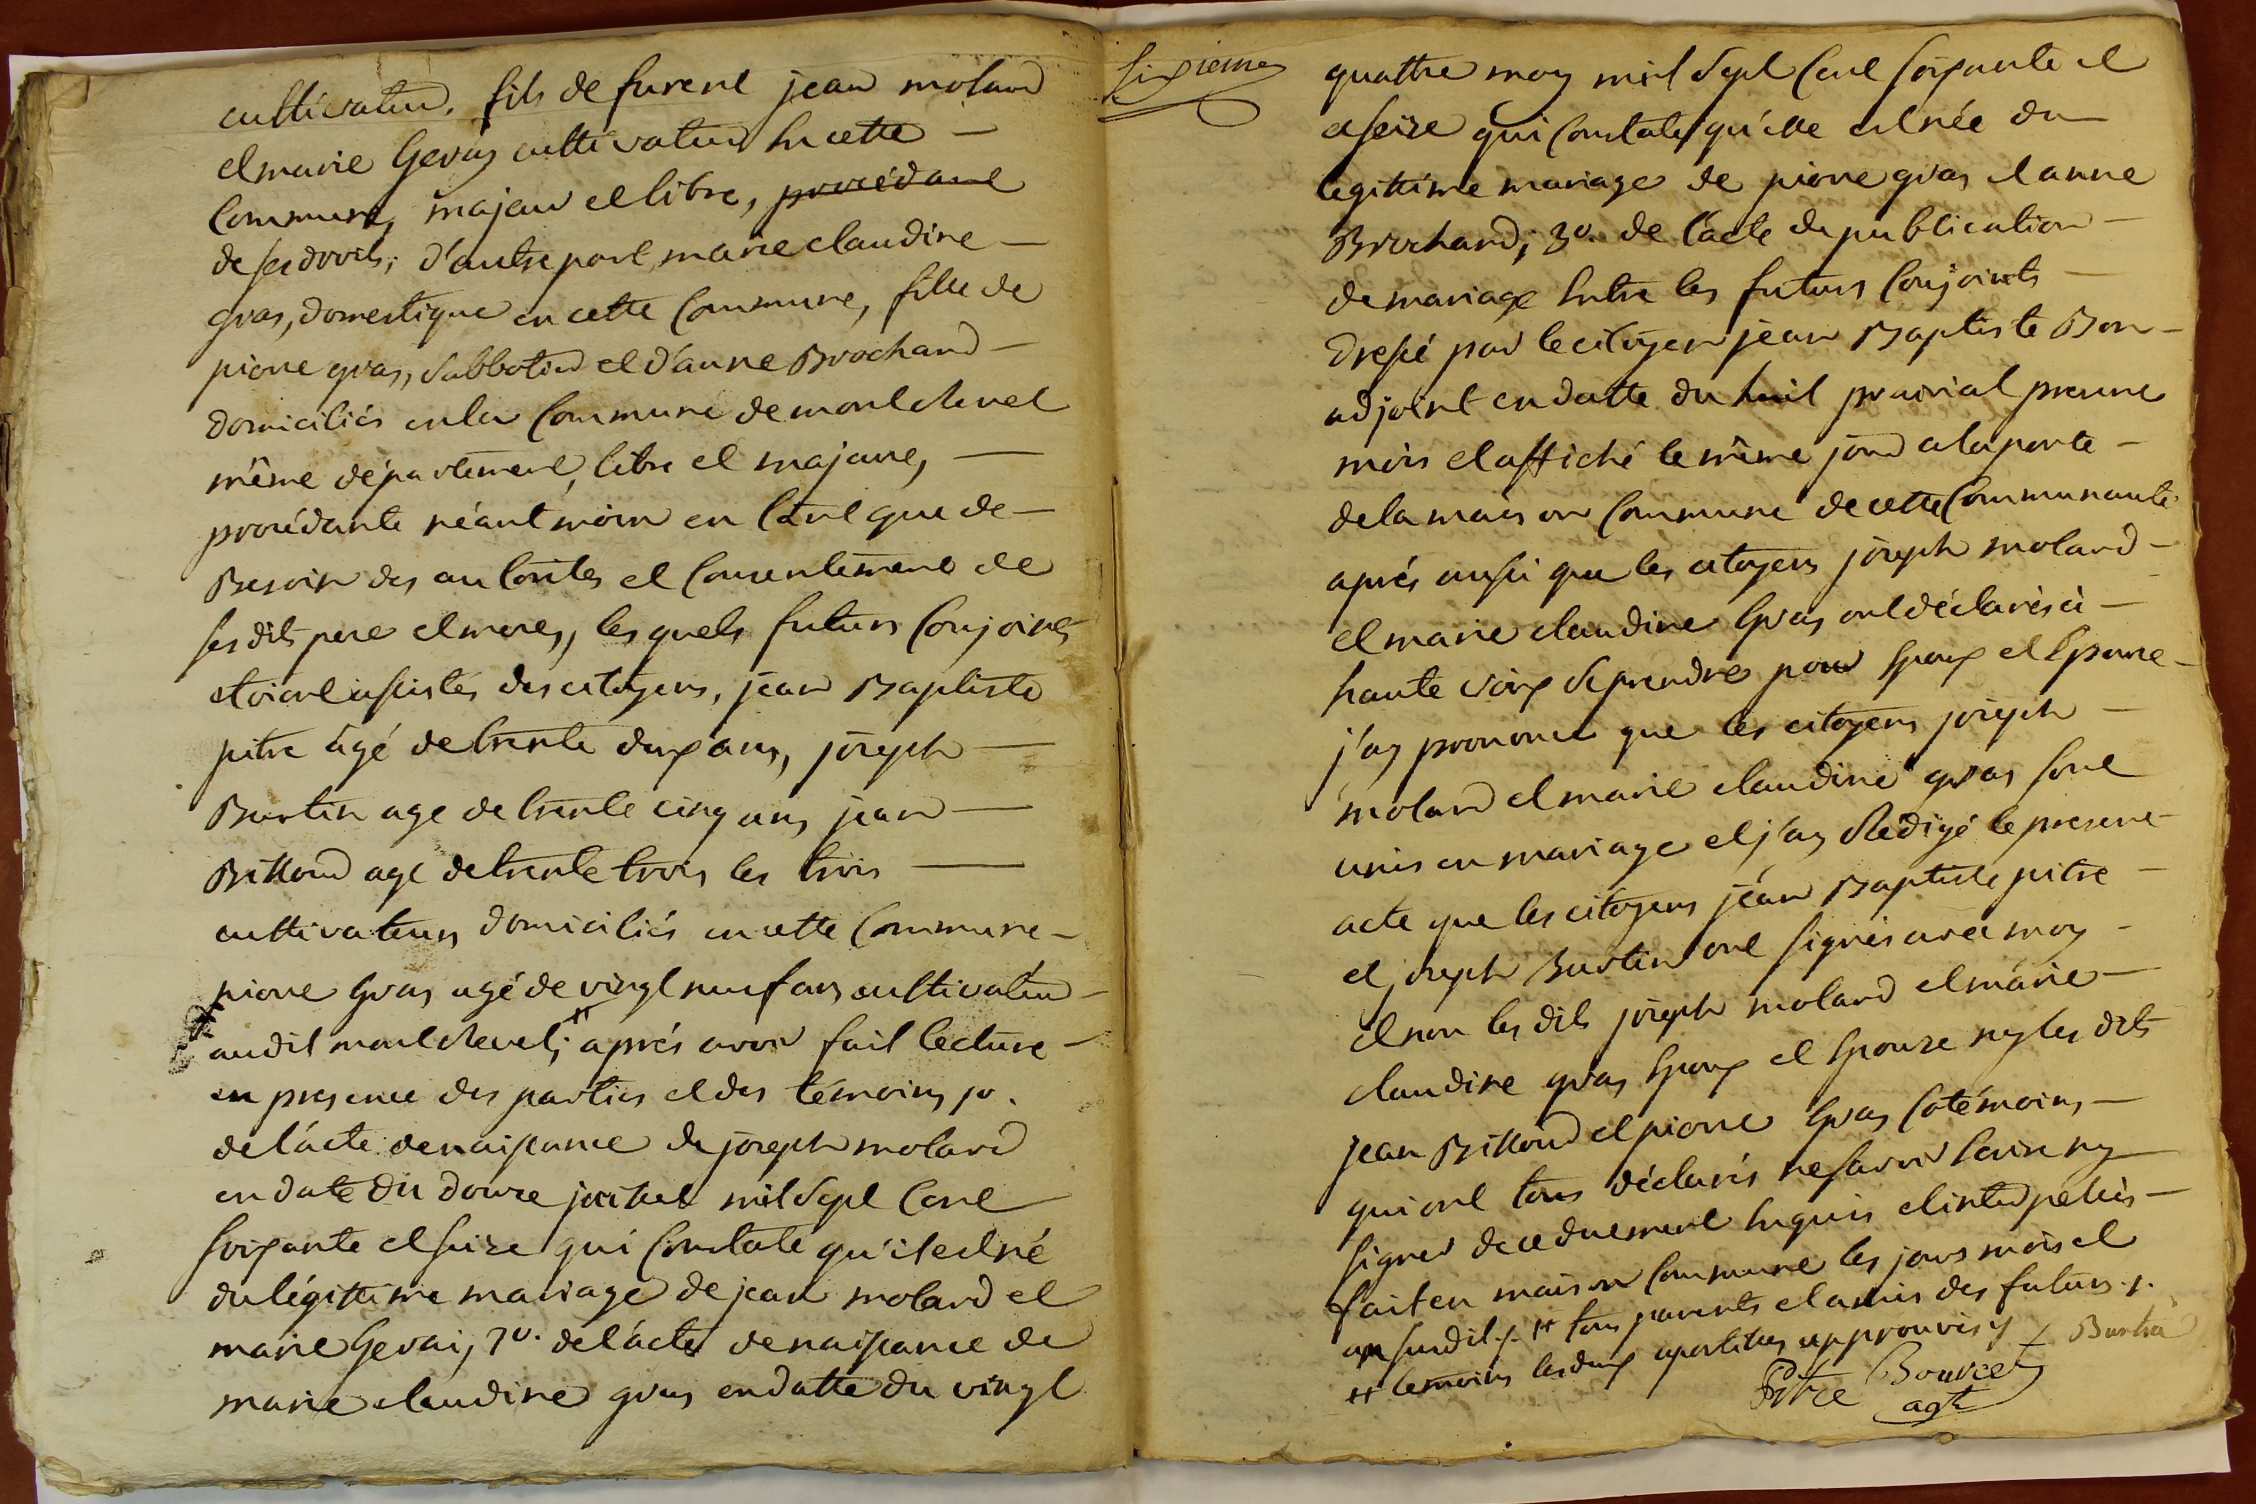 cultivateur, fils de furent jean molard
et marie Gevay cultivateurs en cette
Commune, majeur et libre, procédant
de ses droits; d'autre part marie claudine
gras, domestique en cette Commune, fille de
pierre gras, sabbotier et d'anne Brochard
domiciliés en la Commune de montrevel
même département, libre et majeure,
procédante néantmoin en tant que de
Besoin des autorités et Consentement de
ses dits pere et mere, les quels futurs Conjoints
etoient assistés des citoyens, jean Baptiste
pitre âgé de trente deux ans, joseph
Burtin age de trente cinq ans, jean
Billoud age de trente trois les trois
cultivateurs domiciliés en cette Commune
pierre Gras agé de vingt neuf ans cultivateur
au dit montrevel; # après avoir fait lecture
en presence des parties et des témoins 1o.
de l'acte de naissance de joseph molard
en date du douze juillet mil sept Cent
soixante et seize qui Constate qu'il est né
du légittime mariage de jean molard et
marie Gevai, 2o. de l'acte de naissance de
marie claudine gras en datte du vingt
sixieme
quattre may mil sept Cent soixante et
seize qui Constate qu'elle est née du
légittime mariage de pierre gras et anne
Brochard; 3o. de l'acte de publication
de mariage entre les futurs Conjoints
dressé par le citoyen jean Baptiste Bon
adjoint en datte du huit prairial present
mois et affiché le même jour a la porte
de la maison Commune de cette Communauté
après aussi que les citoyens joseph molard
et marie claudine Gras ont déclarés à
haute voix se prendre pour Epoux et Epouse
j'ay prononcé que les citoyens joseph
molard et marie claudine gras sont
unis en mariage et j'ay Redigé le present
acte que les citoyens jean Baptiste pitre
et joseph Burtin ont signés avec moy
et non les dits joseph molard et marie
claudine gras Epoux et Epouse ny les dits
jean Billoud et pierre Gras Cotémoins,
qui ont tous déclarés ne savoir Ecrire ny
signer de ce duement Enquis et interpellés
fait en maison Commune les jours mois et
an susdit ./. # tous parents et amis des futurs ./.
# temoins les deux apostilles approuvés ./. Burtin
Pitre Bouvret
agt